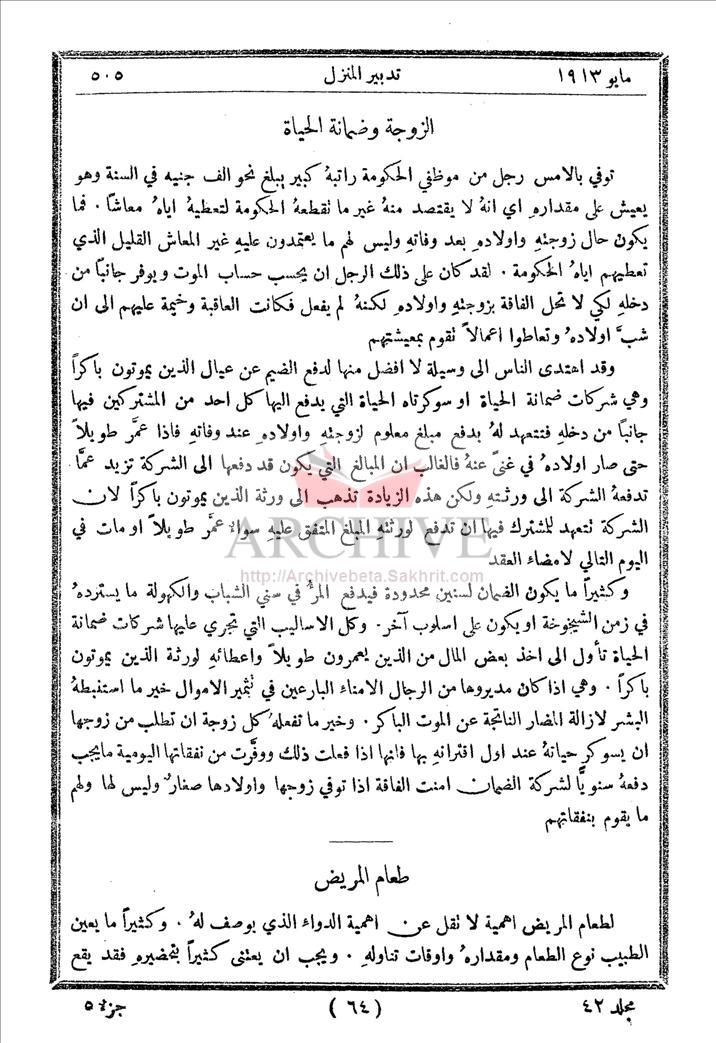 مايو ١٩١٣ تدبير المنزل ٥٠٥
الزوجة وضمانة الحياة
توفي بالامس رجل من موظفي الحكومة راتبهُ كبير يبلغ نحو الف جنيه في السنة وهو
يعيش على مقدارهِ اي انهُ لا يقتصد منهُ غير ما تقطعهُ الحكومة لتعطيهُ اياهُ معاشاً . فما
يكون حال زوجتهِ واولادهِ بعد وفاتهِ وليس لهم ما يعتمدون عليهِ غير المعاش القليل الذي
تعطيهم اياهُ الحكومة . لقد كان على ذلك الرجل ان يحسب حساب الموت ويوفر جانباً من
دخلهِ لكي لا تحل الفاقة بزوجتهِ واولادهِ لكنهُ لم يفعل فكانت العاقبة وخيمة عليهم الى ان
شبَّ اولادهُ وتعاطوا اعمالاً تقوم بمعيشتهم
وقد اهتدى الناس الى وسيلة لا افضل منها لدفع الضيم عن عيال الذين يموتون باكراً
وهي شركات ضمانة الحياة او سوكرتاه الحياة التي يدفع اليها كل احد من المشتركين فيها
جانباً من دخلهِ فتتعهد لهُ بدفع مبلغ معلوم لزوجتهِ واولادهِ عند وفاتهِ فاذا عمَّر طويلاً
حتى صار اولادهُ في غنىً عنهُ فالغالب ان المبالغ التي يكون قد دفعها الى الشركة تزيد عمَّا
تدفعهُ الشركة الى ورثتهِ ولكن هذه الزيادة تذهب الى ورثة الذين يموتون باكراً لان
الشركة تتعهد للمشترك فيها ان تدفع لورثتهِ المبلغ المتفق عليهِ سواءٌ عمَّر طويلاً او مات في
اليوم التالي لامضاء العقد
ARCHIVE
http://Archivebeta.Sakhrit.com
وكثيراً ما يكون الضمان لسنين محدودة فيدفع المرءُ في سني الشباب والكهولة ما يستردهُ
في زمن الشيخوخة او يكون على اسلوب آخر . وكل الاساليب التي تجري عليها شركات ضمانة
الحياة تأول الى اخذ بعض المال من الذين يعمرون طويلاً واعطائهِ لورثة الذين يموتون
باكراً . وهي اذا كان مديروها من الرجال الامناء البارعين في تثمير الاموال خير ما استنبطهُ
البشر لازالة المضار الناتجة عن الموت الباكر . وخير ما تفعلهُ كل زوجة ان تطلب من زوجها
ان يسوكر حياتهُ عند اول اقترانهِ بها فانها اذا فعلت ذلك ووفَّرت من نفقاتها اليومية ما يجب
دفعهُ سنويًّا لشركة الضمان امنت الفاقة اذا توفي زوجها واولادها صغارٌ وليس لها ولهم
ما يقوم بنفقاتهم
طعام المريض
لطعام المريض اهمية لا تقل عن اهمية الدواء الذي يوصف لهُ . وكثيراً ما يعين
الطبيب نوع الطعام ومقدارهُ واوقات تناولهِ . ويجب ان يعتنى كثيراً بتحضيرهِ فقد يقع
مجلد ٤٢ (٦٤) جزء ٥